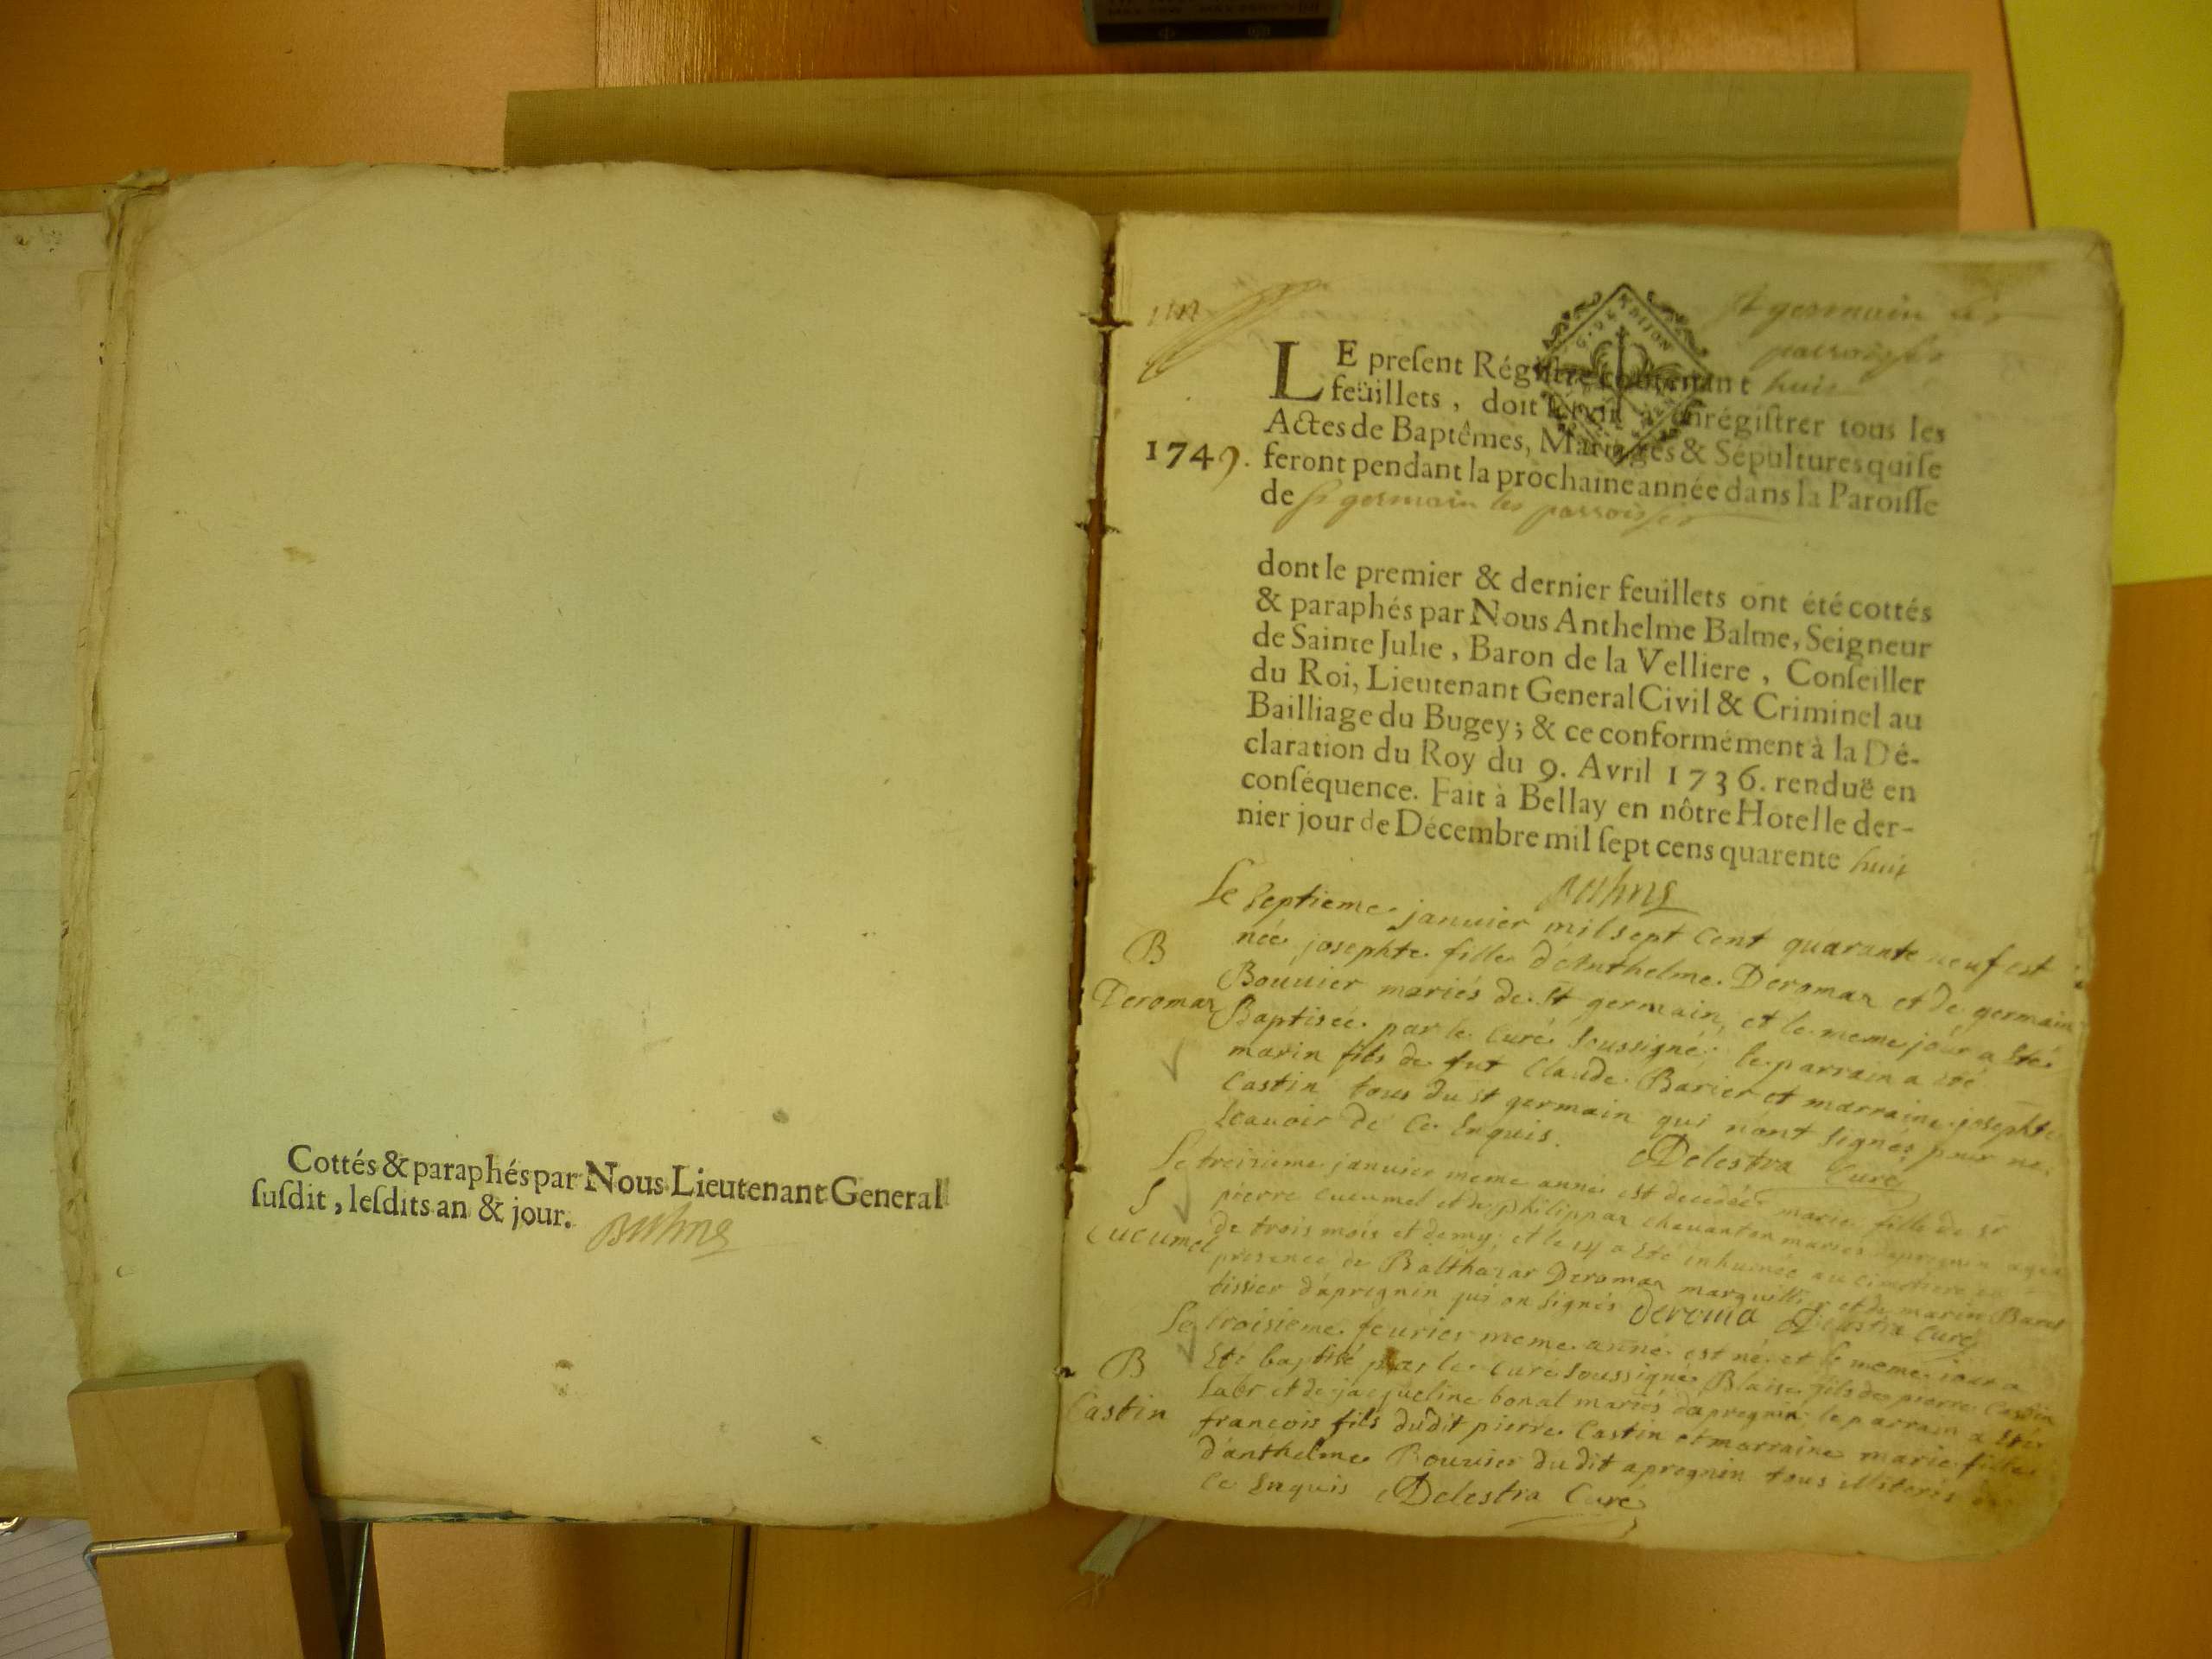 Cottés & paraphés par Nous Lieutenant General
ſuſdit, leſdits an & jour.
st germain les
parroisses
LE preſent Régiſtre contenant huit
feüillets, doit ſervir à enrégiſtrer tous les
Actes de Baptêmes, Mariages & Sépultures qui ſe
1749. feront pendant la prochaine année dans la Paroiſſe
de st germain les parroisses
dont le premier & dernier feuillets ont été cottés
& paraphés par Nous Anthelme Balme, Seigneur
de Sainte Julie, Baron de la Velliere, Conſeiller
du Roi, Lieutenant General Civil & Criminel au
Bailliage du Bugey; & ce conformément à la Dé-
claration du Roy du 9. Avril 1736. renduë en
conſéquence. Fait à Bellay en nôtre Hotel le der-
nier jour de Décembre mil ſept cens quarente huit
Le septieme janvier mil sept cent quarante neuf est
B
née josephte fille d'Anthelme Deromaz et de germain
Deromaz
Bouvier mariés de st germain, et le meme jour a été
Baptisée par le curé soussigné; le parrain a été
marin fils de fut Claude Barier et marraine josephte
Castin tous du st germain qui n'ont signés pour ne
scavoir de ce Enquis. Delestra Curé
Le treizieme janvier meme année est decedée marie fille de sr
S
pierre cucumel et de philippaz chevanton mariés
Cucumel
de trois mois et demy; et le 14 a été inhumée au cimetiere en
presence de Balthazar Deromaz marguillier et de marin
tissier d'apregnin qui on signés Deroma Delestra Curé
Le troisieme fevrier meme année est né et le meme jour a
B
Eté baptisé par le curé soussigné Blaise fils de pierre Castin
Castin
et de jacqueline bonat mariés d'apregnin; le parrain a été
francois fils dudit pierre Castin et marraine marie fille
d'anthelme Bouvier du dit apregnin tous illiterés de
ce Enquis Delestra Curé